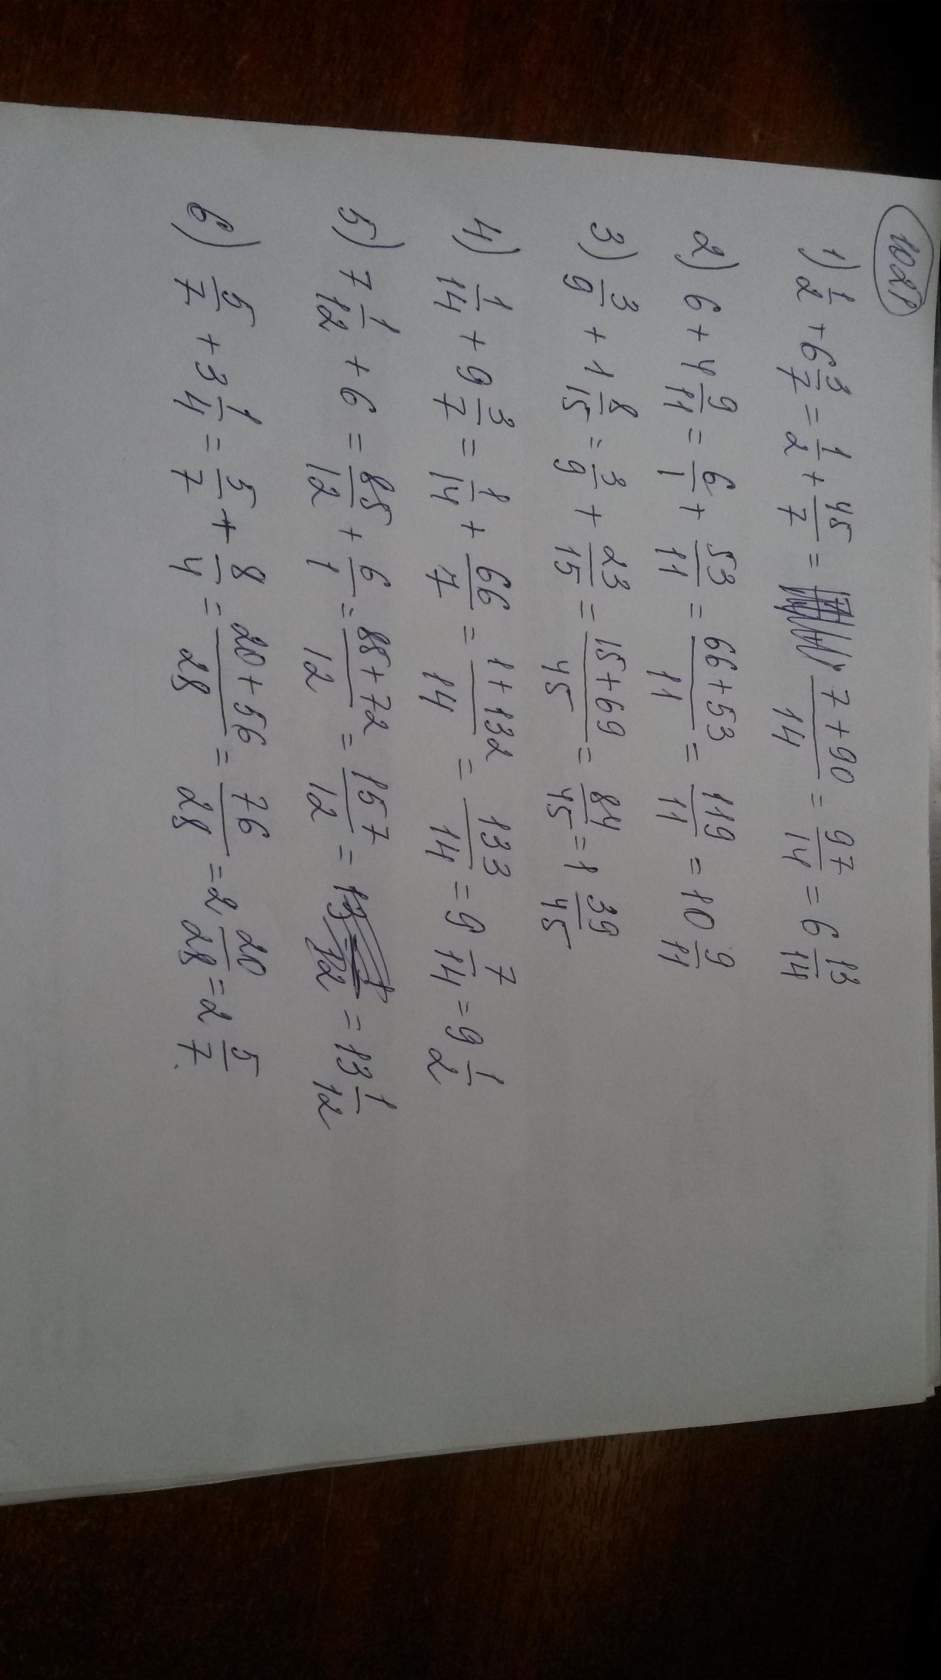 1028
1) 1/2 + 6 3/7 = 1/2 + 45/7 = 7+90/14 = 97/14 = 6 13/14
2) 6 + 4 9/11 = 6/1 + 53/11 = 66+53/11 = 119/11 = 10 9/11
3) 3/9 + 1 8/15 = 3/9 + 23/15 = 15+69/45 = 84/45 = 1 39/45
4) 1/14 + 9 3/7 = 1/14 + 66/7 = 1+132/14 = 133/14 = 9 7/14 = 9 1/2
5) 7 1/12 + 6 = 85/12 + 6/1 = 85+72/12 = 157/12 = = 13 1/12
6) 5/7 + 3 1/4 = 5/7 + 8/4 = 20+56/28 = 76/28 = 2 20/28 = 2 5/7.